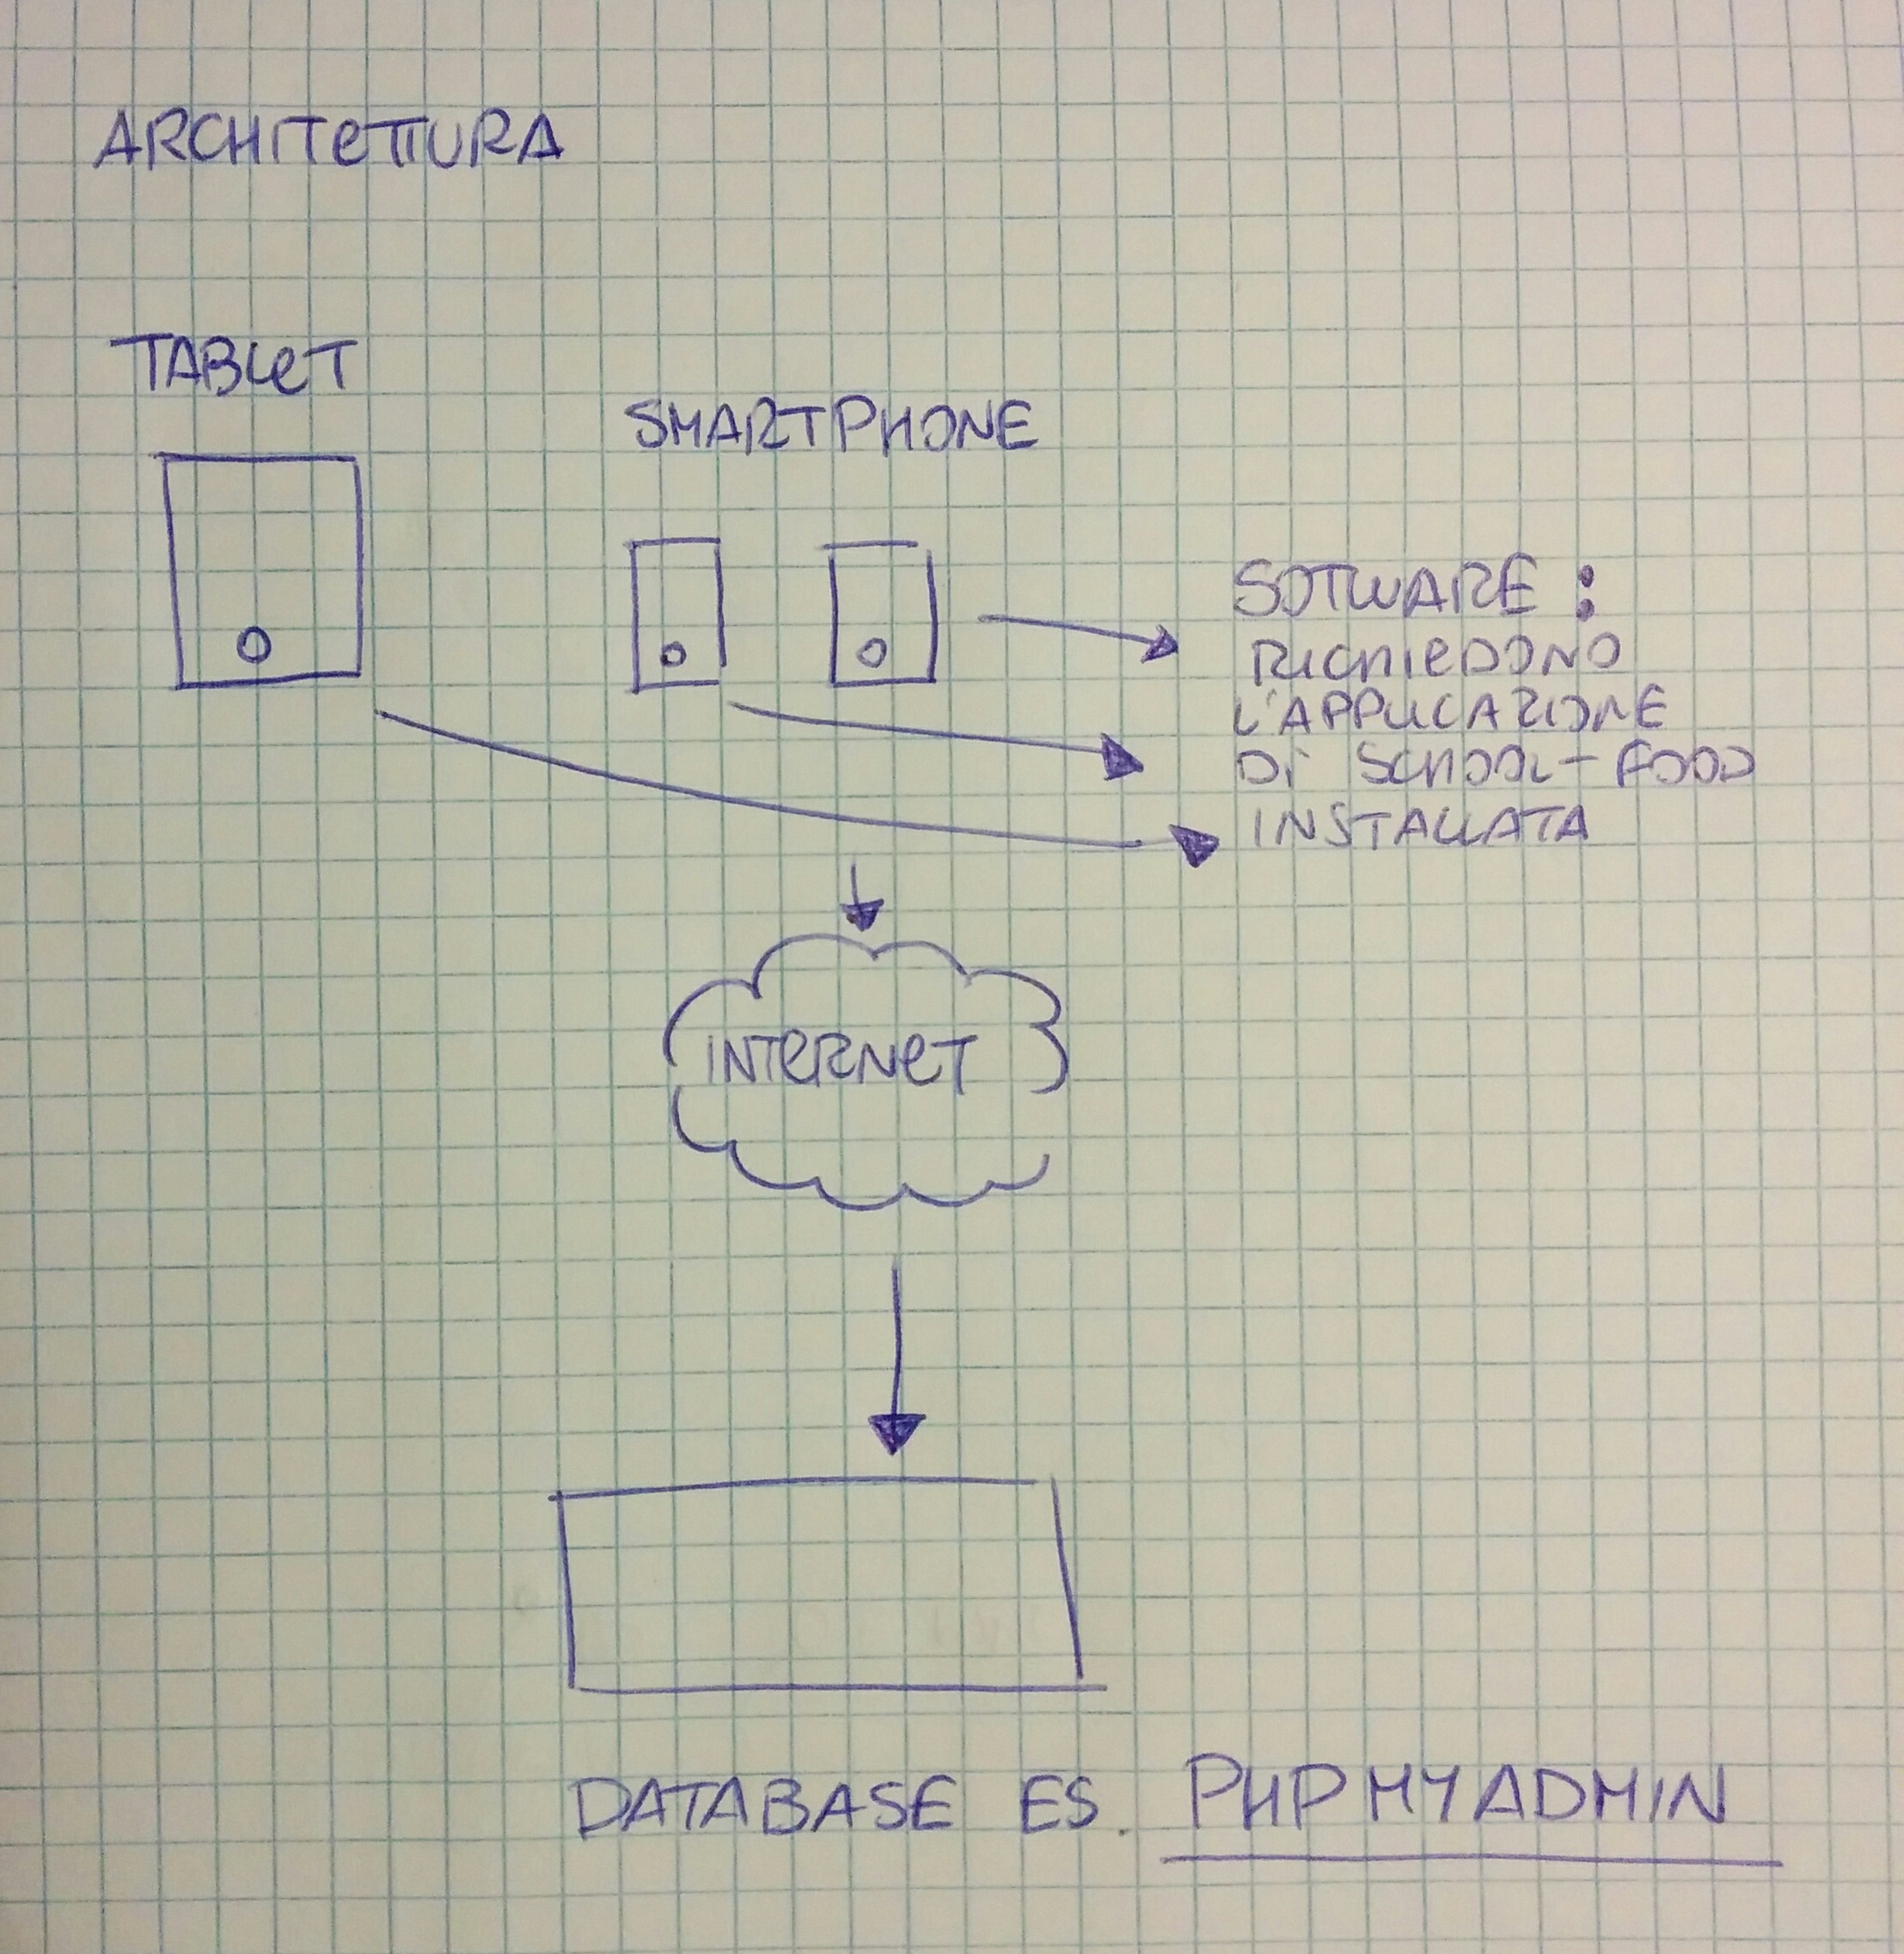 ARCHITETTURA
TABLET
SMARTPHONE
SOTWARE :
RICHIEDONO
L'APPLICAZIONE
DI SCHOOL-FOOD
INSTALLATA
INTERNET
DATABASE ES. PHPMYADMIN